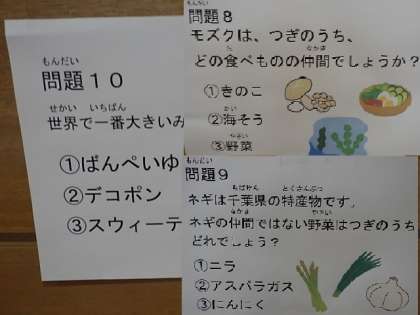 もんだい
問題１０
せかい いちばん
世界で一番大きいみ
①ばんぺいゆ
②デコポン
③スウィーテ
もんだい
問題８
モズクは、つぎのうち、
た なかま
どの食べものの仲間でしょうか？
①きのこ
かい
②海そう
やさい
③野菜
もんだい
問題９
ちばけん とくさんぶつ
ネギは千葉県の特産物です。
なかま やさい
ネギの仲間ではない野菜はつぎのうち
どれでしょう？
①ニラ
②アスパラガス
③にんにく